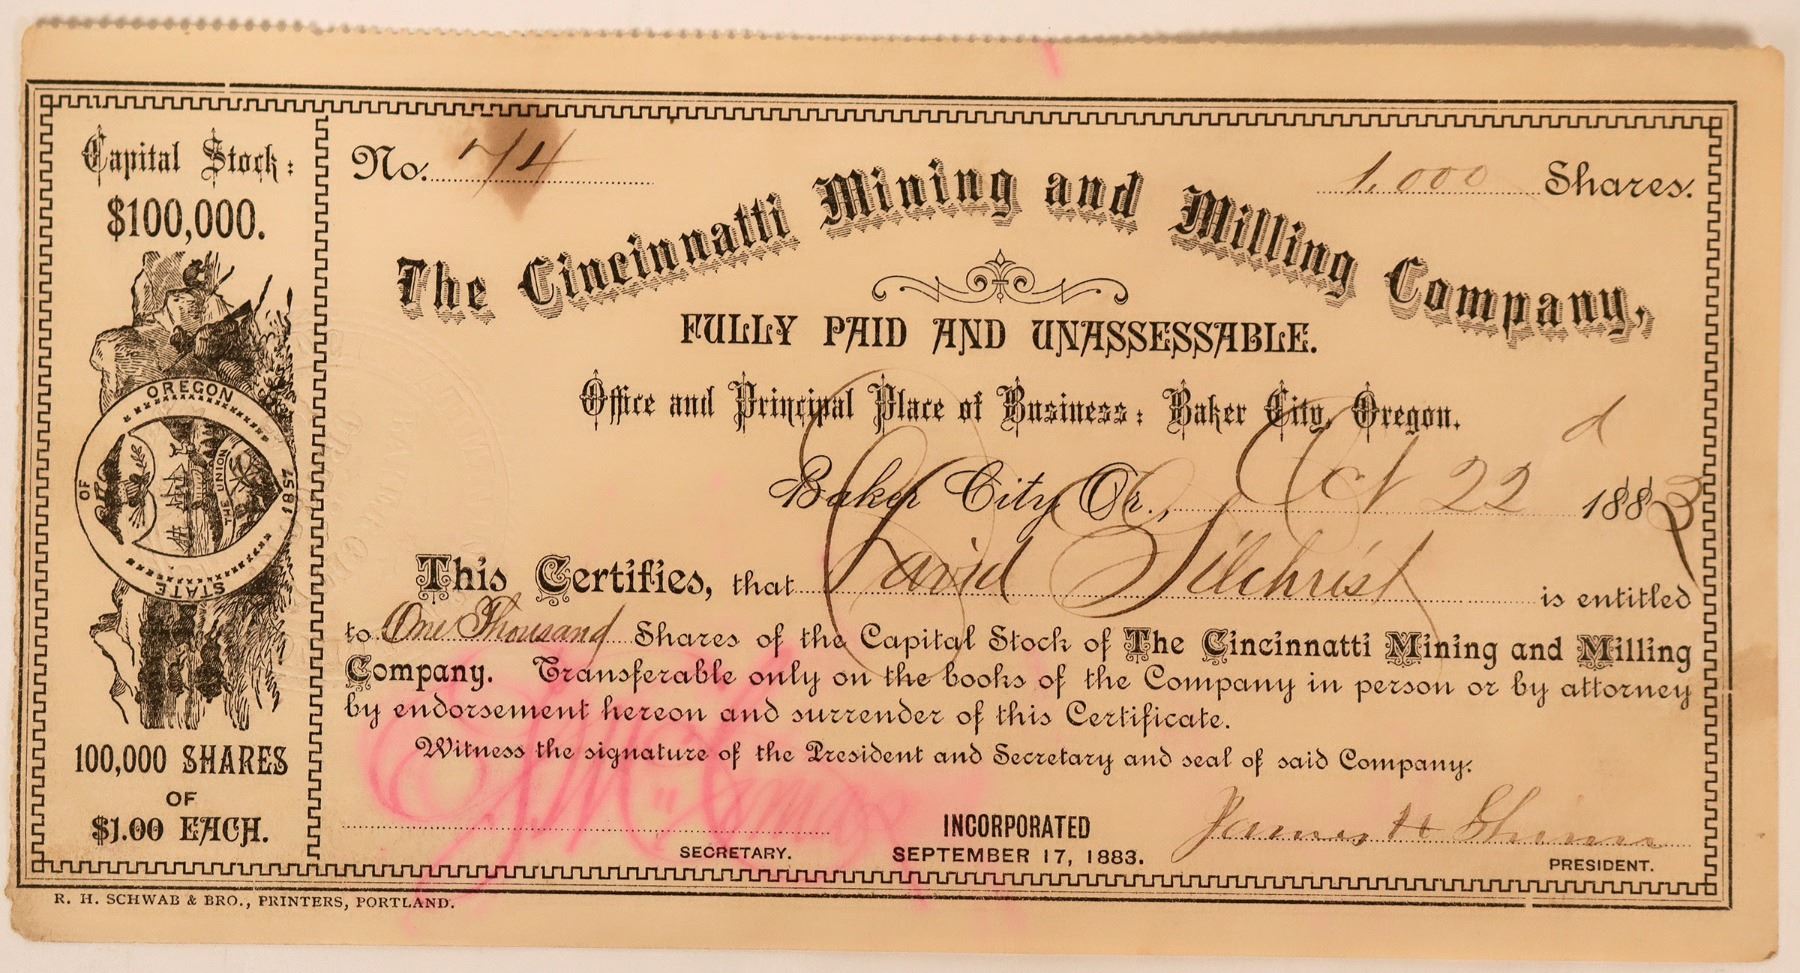 Capital Stock:
$100,000.
OREGON
STATE OF
1857
THE UNION
100,000 SHARES
OF
$1.00 EACH.
No. 74
1,000 Shares.
The Cincinnatti Mining and Milling Company,
FULLY PAID AND UNASSESSABLE.
Office and Principal Place of Business: Baker City, Oregon.
Baker City, Or., Oct 22d 1883
This Certifies, that David Gilchrist is entitled
to One Thousand Shares of the Capital Stock of The Cincinnatti Mining and Milling
Company. Transferable only on the books of the Company in person or by attorney
by endorsement hereon and surrender of this Certificate.
Witness the signature of the President and Secretary and seal of said Company:
James H Shinn
SECRETARY.
INCORPORATED
SEPTEMBER 17, 1883.
PRESIDENT.
R. H. SCHWAB & BRO., PRINTERS, PORTLAND.